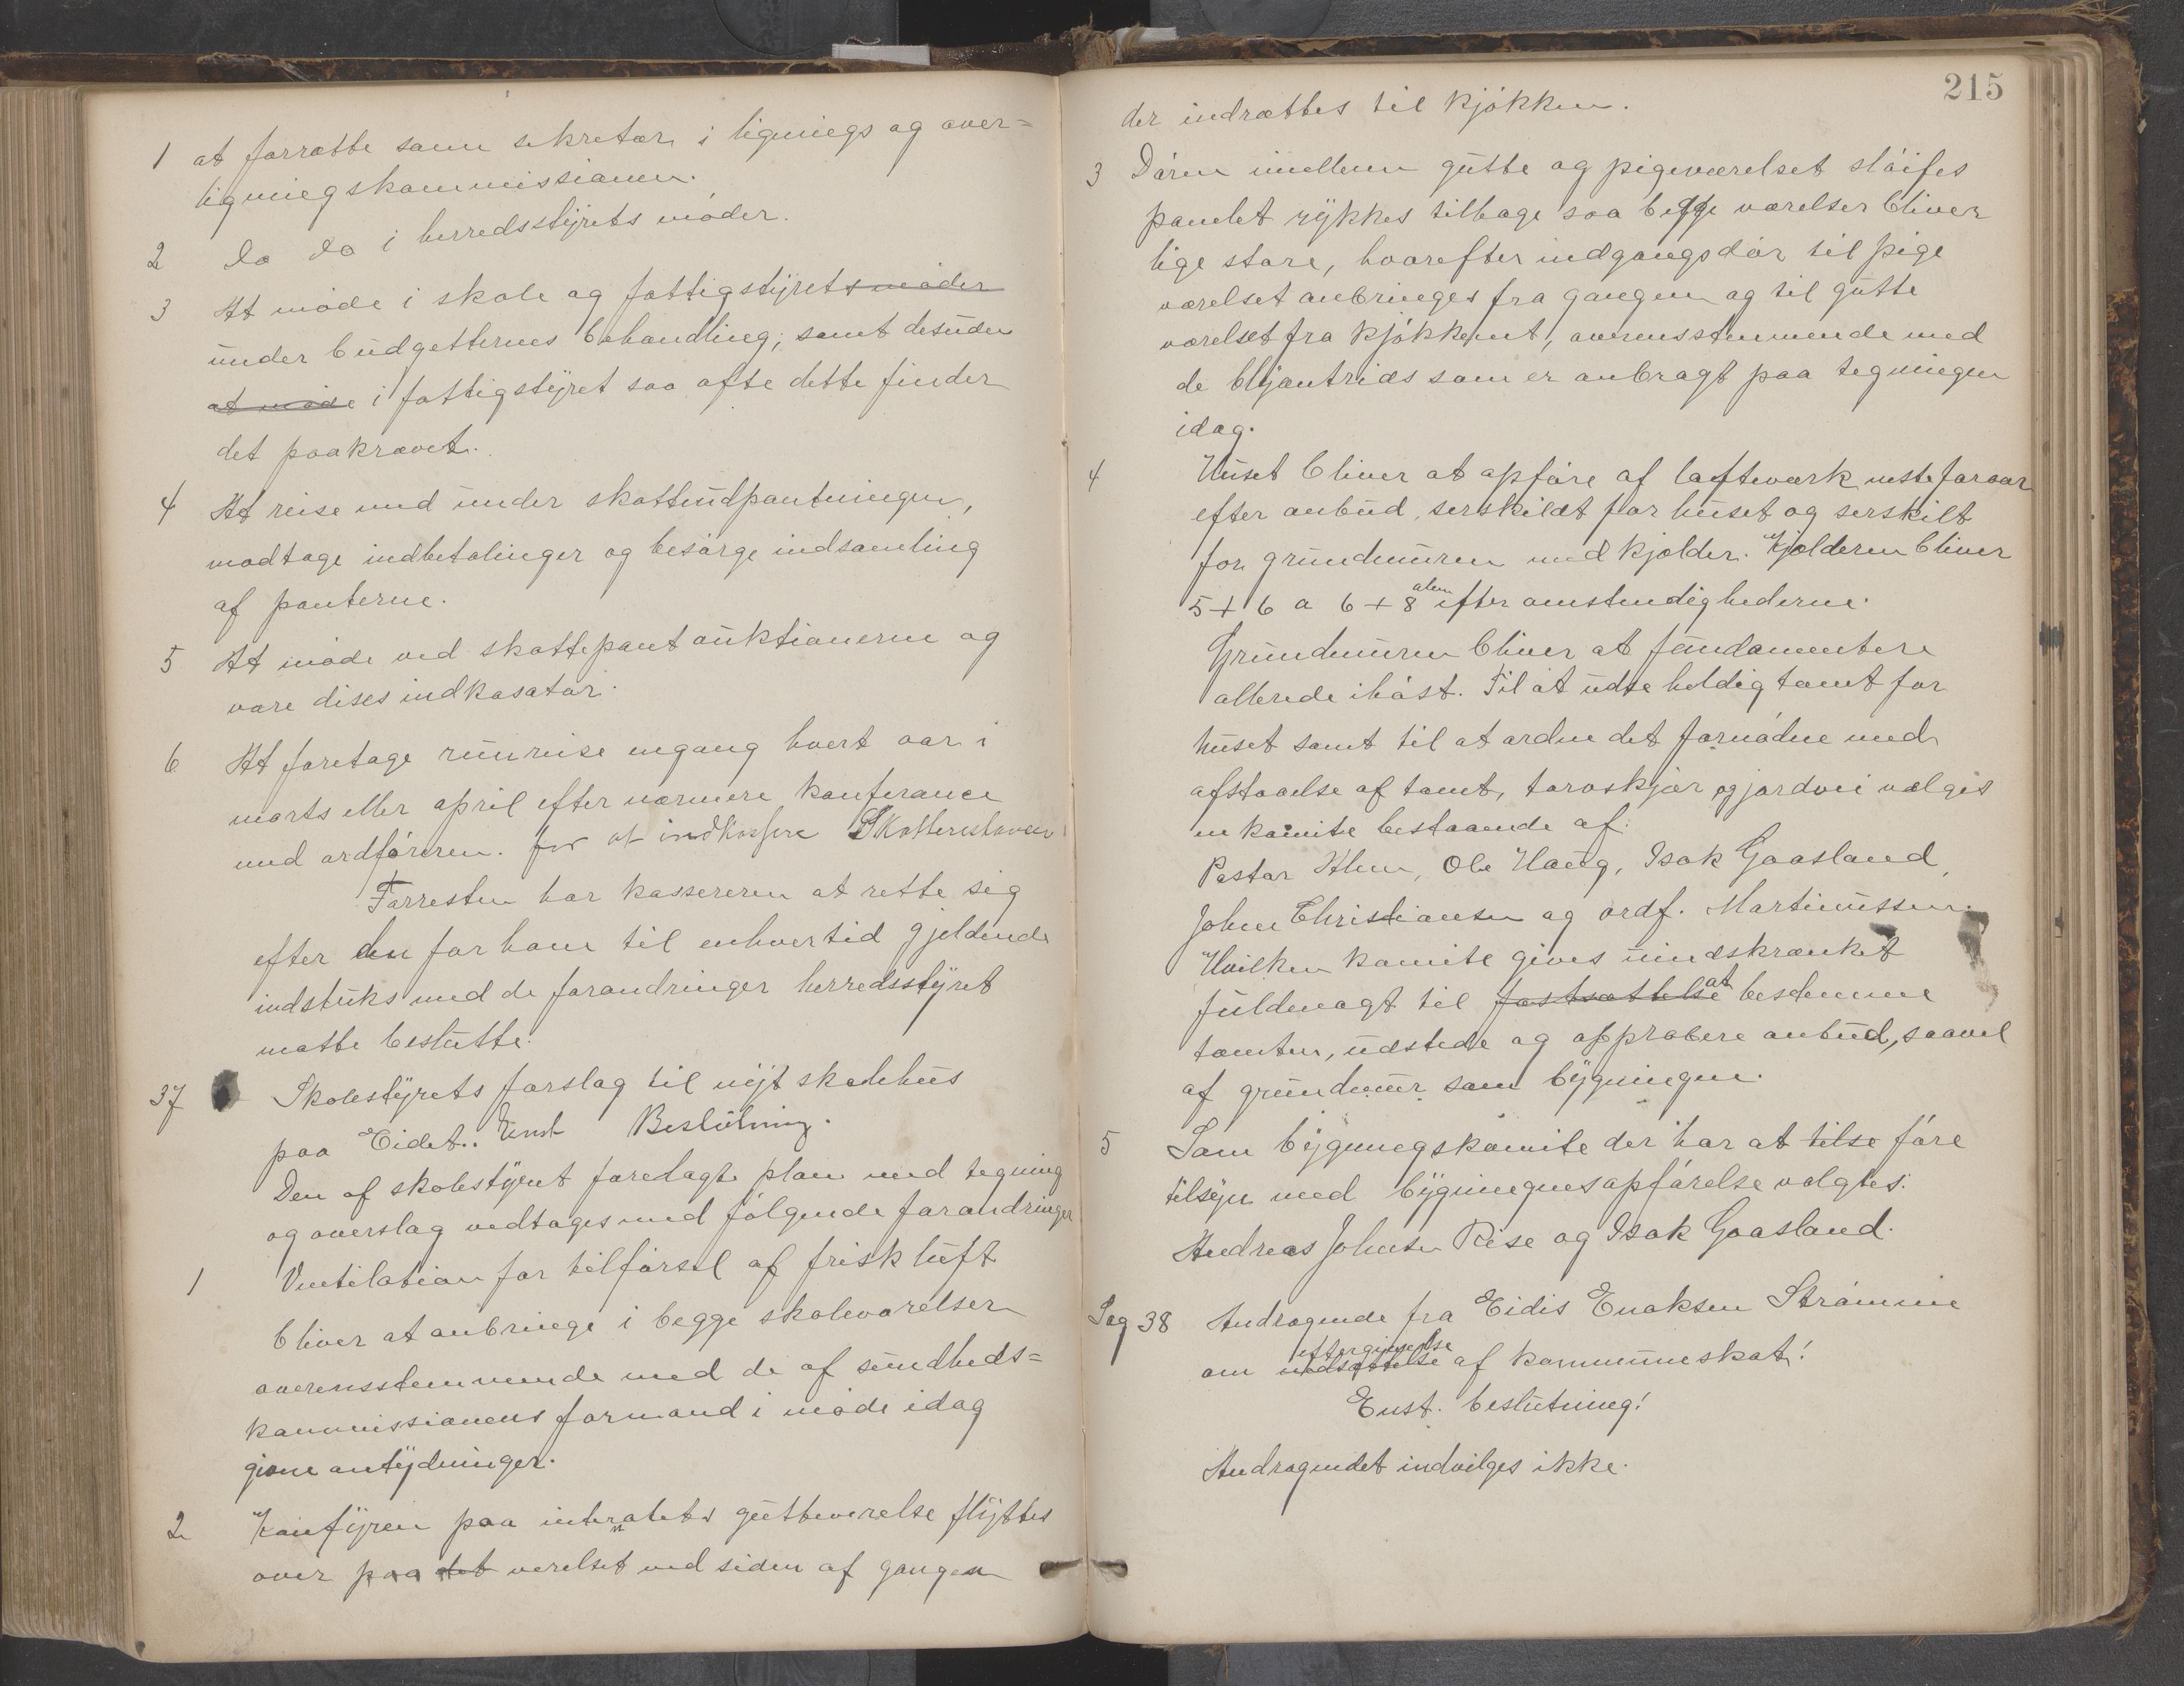 1 at forrætte som sekretær i lignings og over=
ligningskommissionen.
2 Do Do i herredsstyrets møder.
3 At møde i skole og fattigstyrets møder
under budgetternes behandling, samt desuden
at møde i fattigstyret saa ofte dette finder
det paakrævet.
4 At reise med under skatteudpantningen,
modtage indbetalinger og besørge indsamling
af panterne.
5 At møde ved skattepantauktionerne og
være dises indkasatør.
6 At foretage runreise engang hvert aar i
marts eller april efter nærmere konferance
med ordføreren. for at indkassere Skatterestancer
Forresten har kassereren at rette sig
efter den for ham til enhver tid gjeldende
indstuks med de forandringer herredsstyret
matte beslutte.
37 Skolestyrets forslag til nyt skolehus
paa Eidet. Enst Beslutning.
Den af skolestyret forelagte plan med tegning
og overslag vedtages med følgende forandringer
1 Ventilation for tilførsel af frisk luft
bliver at anbringe i begge skoleværelser
overensstemmende med de af sundheds=
kommissionens formand i møde idag
givne antydninger.
2 Komfyren paa internatets gutteværelse flyttes
over paa det verelset ved siden af gangen
215
der indrættes til kjøkken.
3 Døren imellem gutte og pigeværelset sløifes
panelet rykkes tilbage saa begge værelser bliver
lige store, hvorefter indgangsdør til pige
værelset anbringes fra gangen og til gutte
værelset fra kjøkkenet, overensstemmende med
de blyantrids som er anbragt paa tegningen
idag.
4 Huset bliver at opføre af lafteværk neste foraar
efter anbud, serskildt for huset og serskilt
for grundmuren med kjælder. Kjælderen bliver
5 + 6 a 6 + 8 alen efter omstendighederne.
Grundmuren bliver at fundamentere
allerede ihøst. Til at udse heldig tomt for
huset samt til at ordne det fornødne med
afstaaelse af tomt, torvskjær og jordvei vælges
en komite bestaaende af:
Pastor Alme, Ole Haug, Isak Gaasland,
Johan Christiansen og ordf. Martinussen.
Hvilken komite gives uindskrænket
fuldmagt til fastsættelse at bestemme
tomten, udstede og approbere anbud, saavel
af grundmur som bygningen.
5 Som bygningskomite der har at tilse føre
tilsyn med bygningens opførelse valgtes:
Andreas Johnsen Rise og Isak Gaasland.
Sag 38 Andragende fra Eidis Enoksen Strømme
om nedsættelse eftergivelse af kommuneskat!
Enst. beslutning!
Andragendet indvilges ikke.